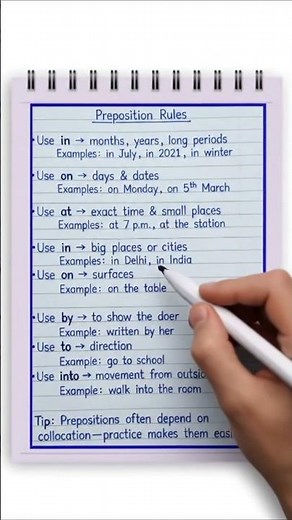 Preposition Rules
• Use in → months, years, long periods
Examples: in July, in 2021, in winter
• Use on → days & dates
Examples: on Monday, on 5th March
• Use at → exact time & small places
Examples: at 7 p.m., at the station
• Use in → big places or cities
Examples: in Delhi, in India
• Use on → surfaces
Example: on the table
• Use by → to show the doer
Example: written by her
• Use to → direction
Example: go to school
• Use into → movement from outsid
Example: walk into the room
Tip: Prepositions often depend on
collocation—practice makes them easi